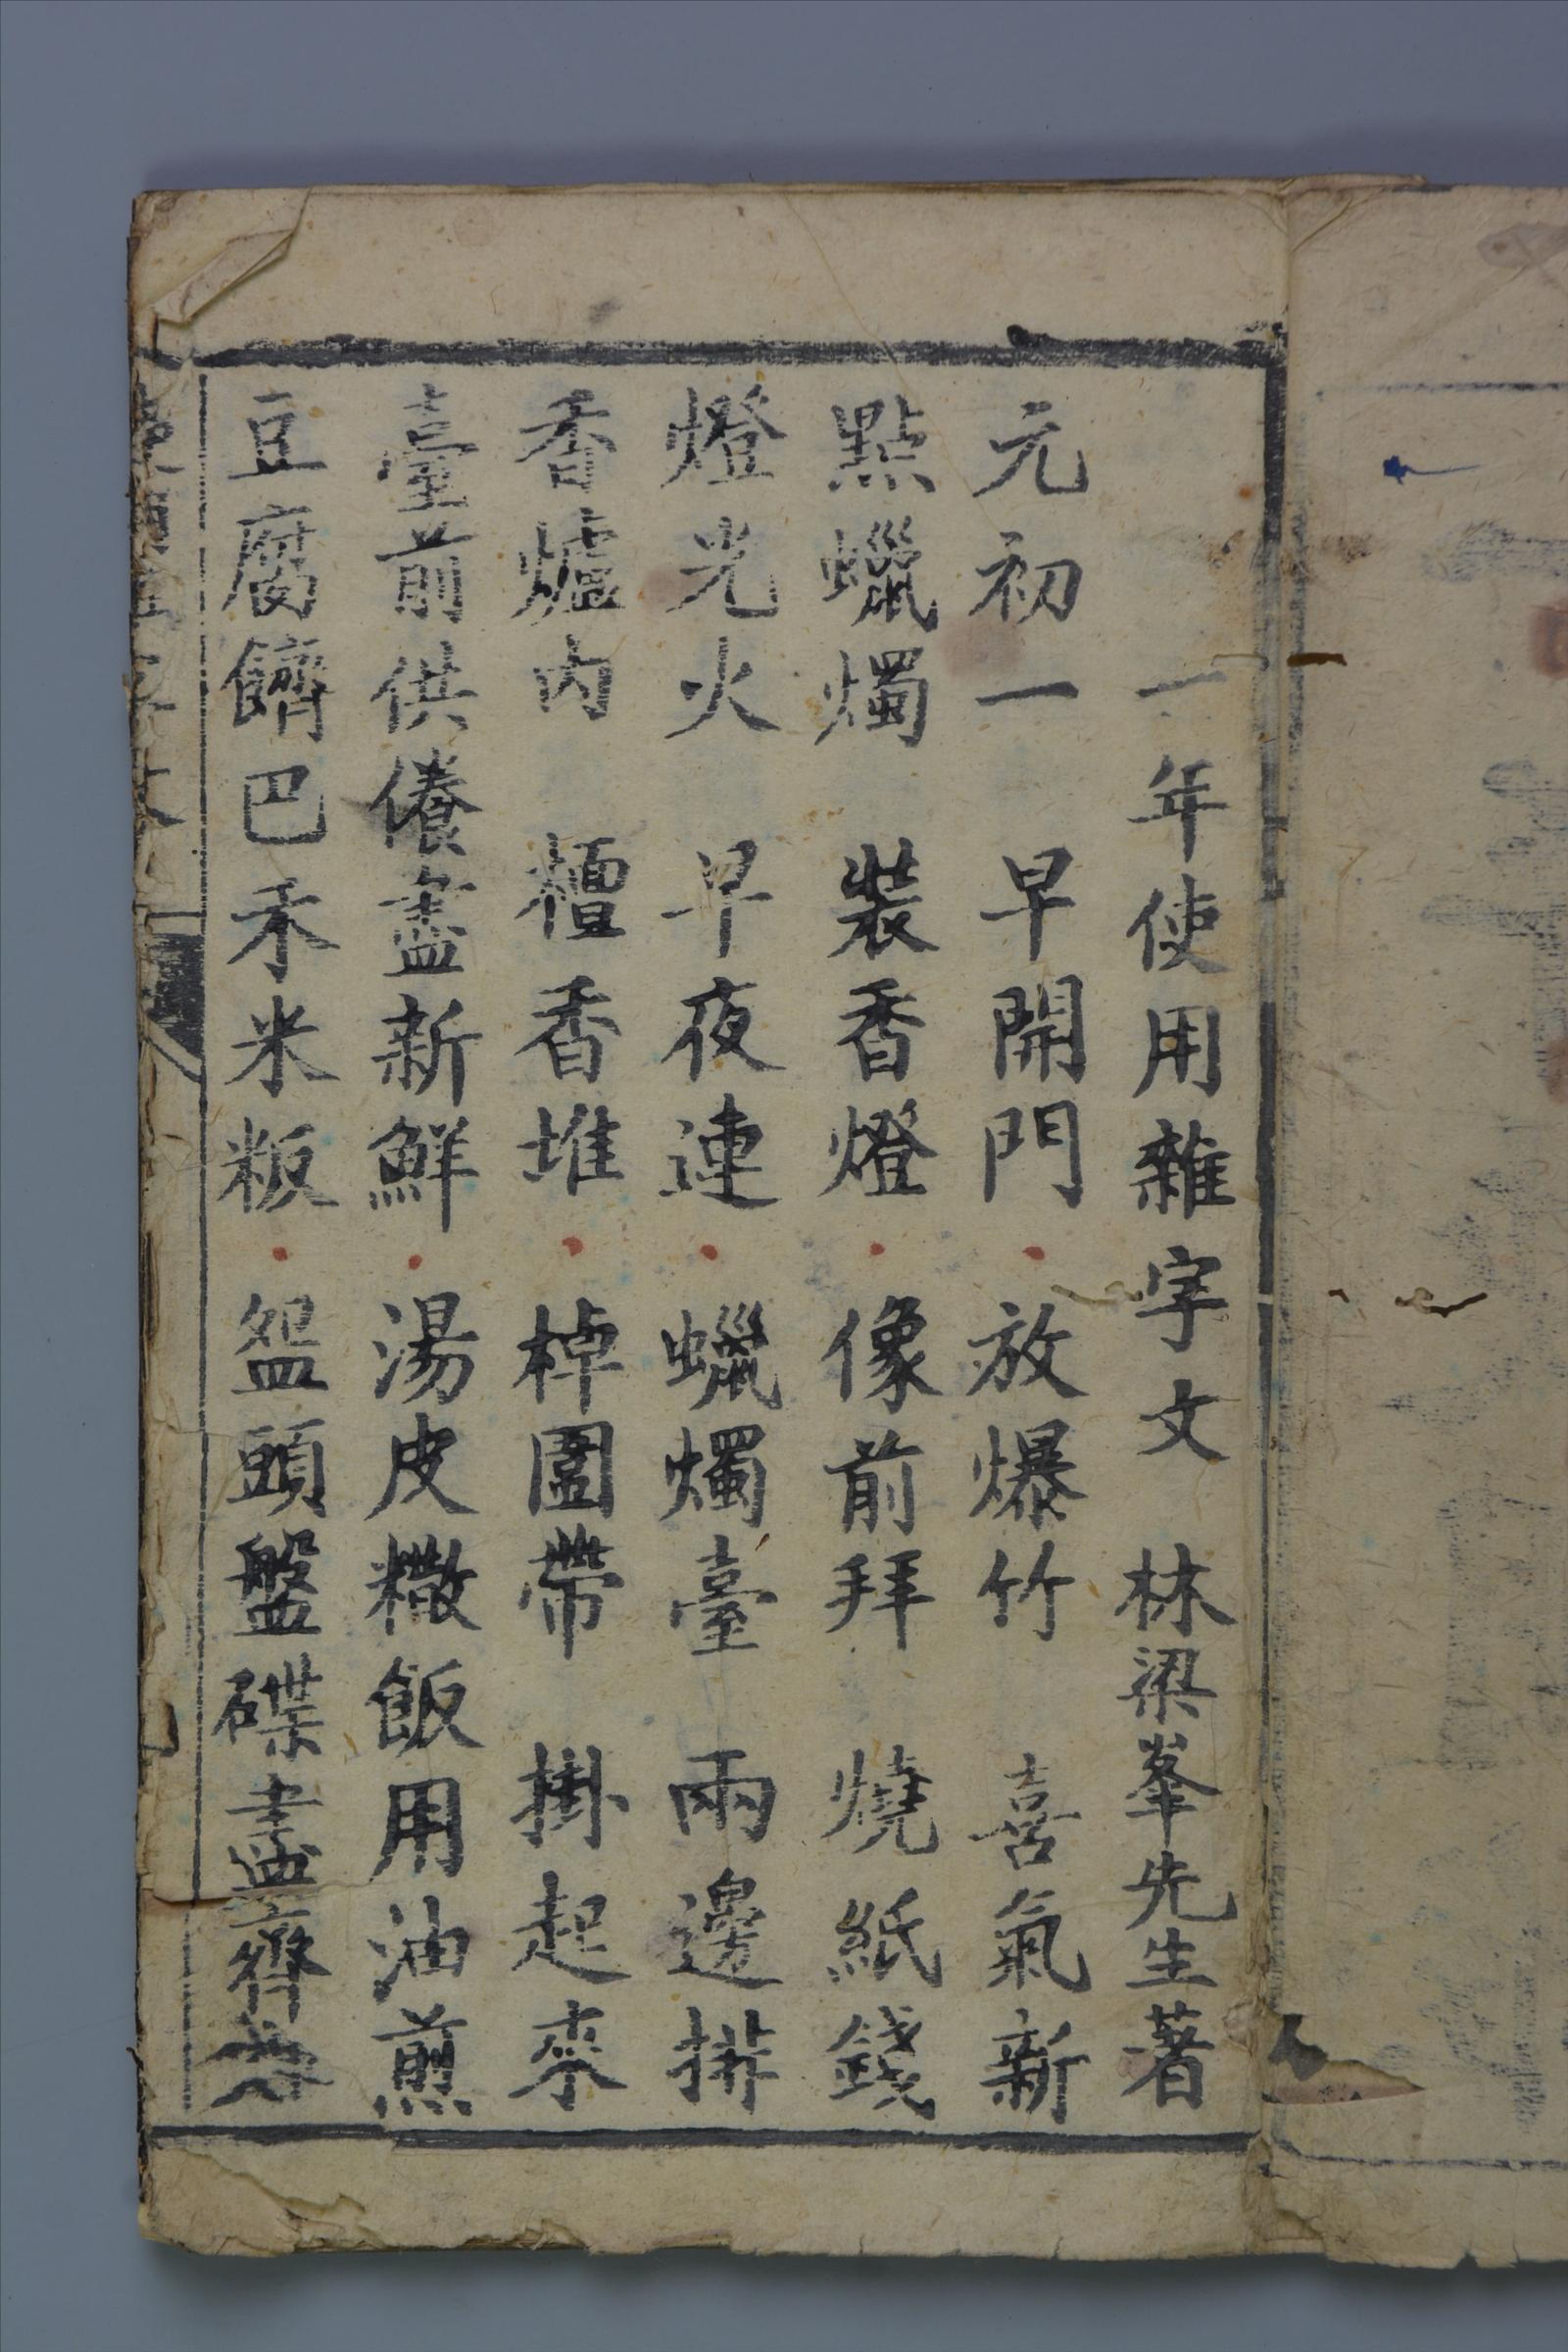 一年使用雜字文 林梁峯先生著
元初一 早開門 放爆竹 喜氣新
點蠟燭 裝香燈 像前拜 燒紙錢
燈光火 早夜連 蠟燭臺 兩邊排
香爐內 檀香堆 棹圍帶 掛起來
臺前供俻盡新鮮 湯皮糤飯用油煎
豆腐䭣巴禾米粄 盌頭盤碟盡齊